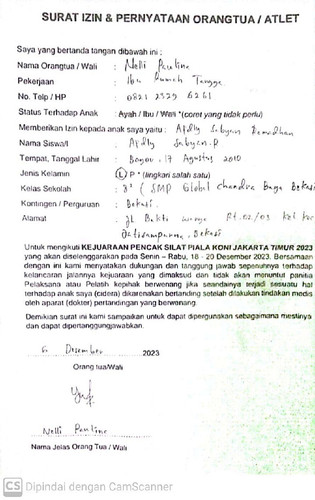 SURAT IZIN & PERNYATAAN ORANGTUA / ATLET
Saya yang bertanda tangan dibawah ini :
Nama Orangtua / Wali : Nelli Pauline
Pekerjaan : Ibu Rumah Tangga
No. Telp / HP : 0821 2529 6261
Status Terhadap Anak : Ayah / Ibu / Wali *(coret yang tidak perlu)
Memberikan Izin kepada anak saya yaitu :
Nama Siswa/I : Sabyan.R
Tempat, Tanggal Lahir : Bogor, 17 Agustus 2010
Jenis Kelamin : L P * (lingkari salah satu)
Kelas Sekolah : SMP Global Chandra Bekasi
Kontingen / Perguruan : Bekasi
Alamat : Jl. Bakti Rt. 02/03 Kel
Jatisampurna, Bekasi
Untuk mengikuti KEJUARAAN PENCAK SILAT PIALA KONI JAKARTA TIMUR 2023
yang akan diselenggarakan pada Senin - Rabu, 18 - 20 Desember 2023. Bersamaan
dengan ini kami menyatakan dukungan dan tanggung jawab sepenuhnya terhadap
kelancaran jalannya kejuaraan yang dimaksud dan tidak akan menuntut panitia
Pelaksana atau Pelatih kepihak berwenang jika seandainya terjadi sesuatu hal
terhadap anak saya (cidera) dikarenakan bertanding setelah dilakukan tindakan medis
oleh aparat (dokter) pertandingan yang berwenang.
Demikian surat ini kami sampaikan untuk dapat dipergunakan sebagaimana mestinya
dan dapat dipertanggungjawabkan.
6 Desember 2023
Orang tua/Wali
Nelli Pauline
Nama Jelas Orang Tua / Wali
CS Dipindai dengan CamScanner